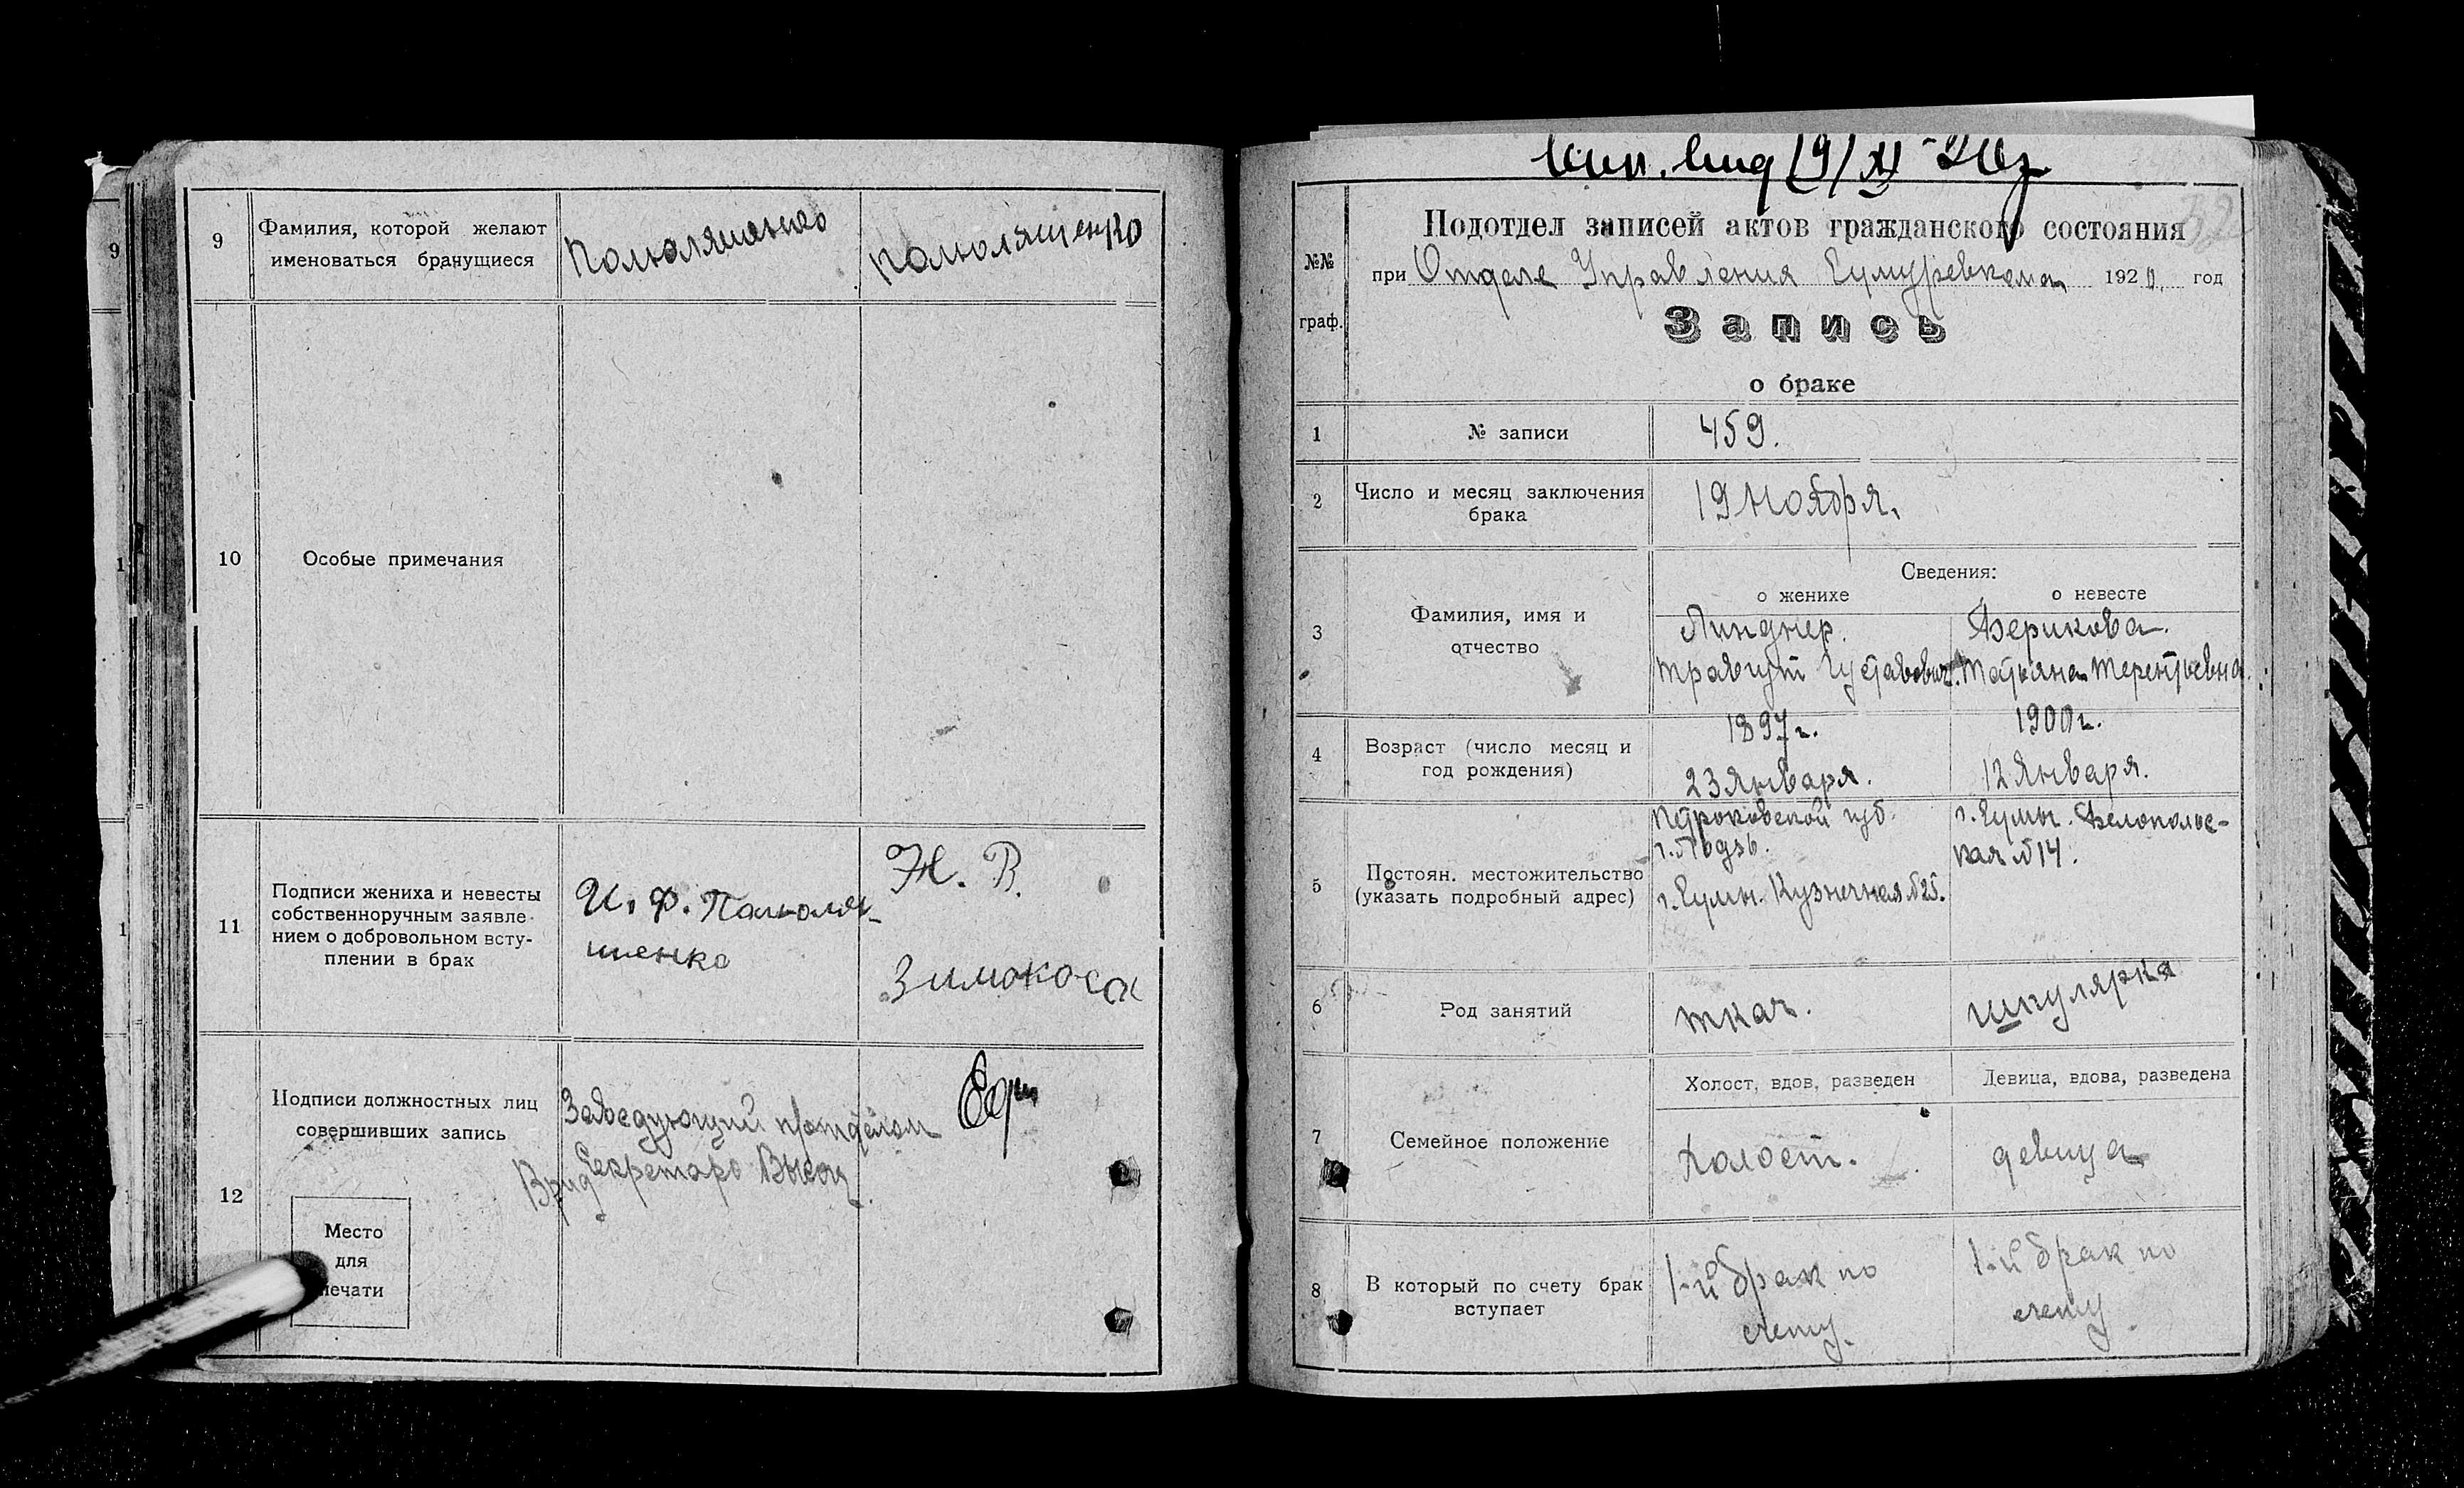 9
Фамилия, которой желают
именоваться брачущиеся
Польоляшенко
Польолященко
10
Особые примечания
11
Подписи жениха и невесты
собственноручным заявле-
нием о добровольном всту-
плении в брак
И. Ф. Польоля-
шенко
Ж. В.
Зимокоса
12
Подписи должностных лиц
совершивших запись
Заведующий п/отделом
Врид Секретаря
Место
для
печати
19/XI-20г
32
№№
граф.
Подотдел записей актов гражданского состояния
при Отделе Управления Сумуревкома 1920 год
Запись
о браке
1
№ записи
459.
2
Число и месяц заключения
брака
19 Ноября.
Сведения:
о женихе
о невесте
3
Фамилия, имя и
отчество
Линднер.
Травгут Густавович.
Берикова.
Татьяна Терентьевна.
4
Возраст (число месяц и
год рождения)
1897 г.
23 Января.
1900 г.
12 Января.
5
Постоян. местожительство
(указать подробный адрес)
Петроковской губ.
г. Лодзь.
г. Сумы. Кузнечная №25.
г. Сумы. Белопольс-
кая №14.
6
Род занятий
ткач.
шпулярка
7
Семейное положение
Холост, вдов, разведен
Девица, вдова, разведена
Холост.
девица
8
В который по счету брак
вступает
1-й брак по
счету.
1-й брак по
счету